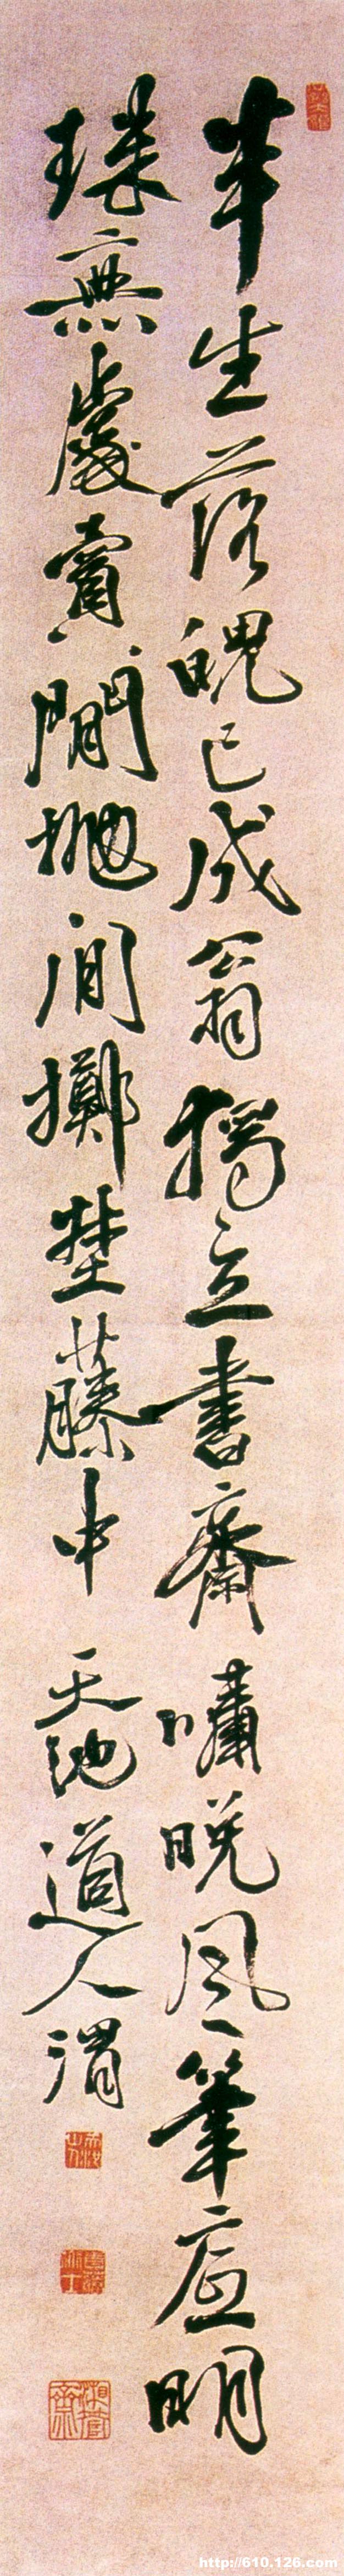 半生落魄已成翁獨立書齋嘯晚風筆底明
珠無處賣閒拋閒擲埜藤中 天池道人渭
湘管齋
http://610.126.com